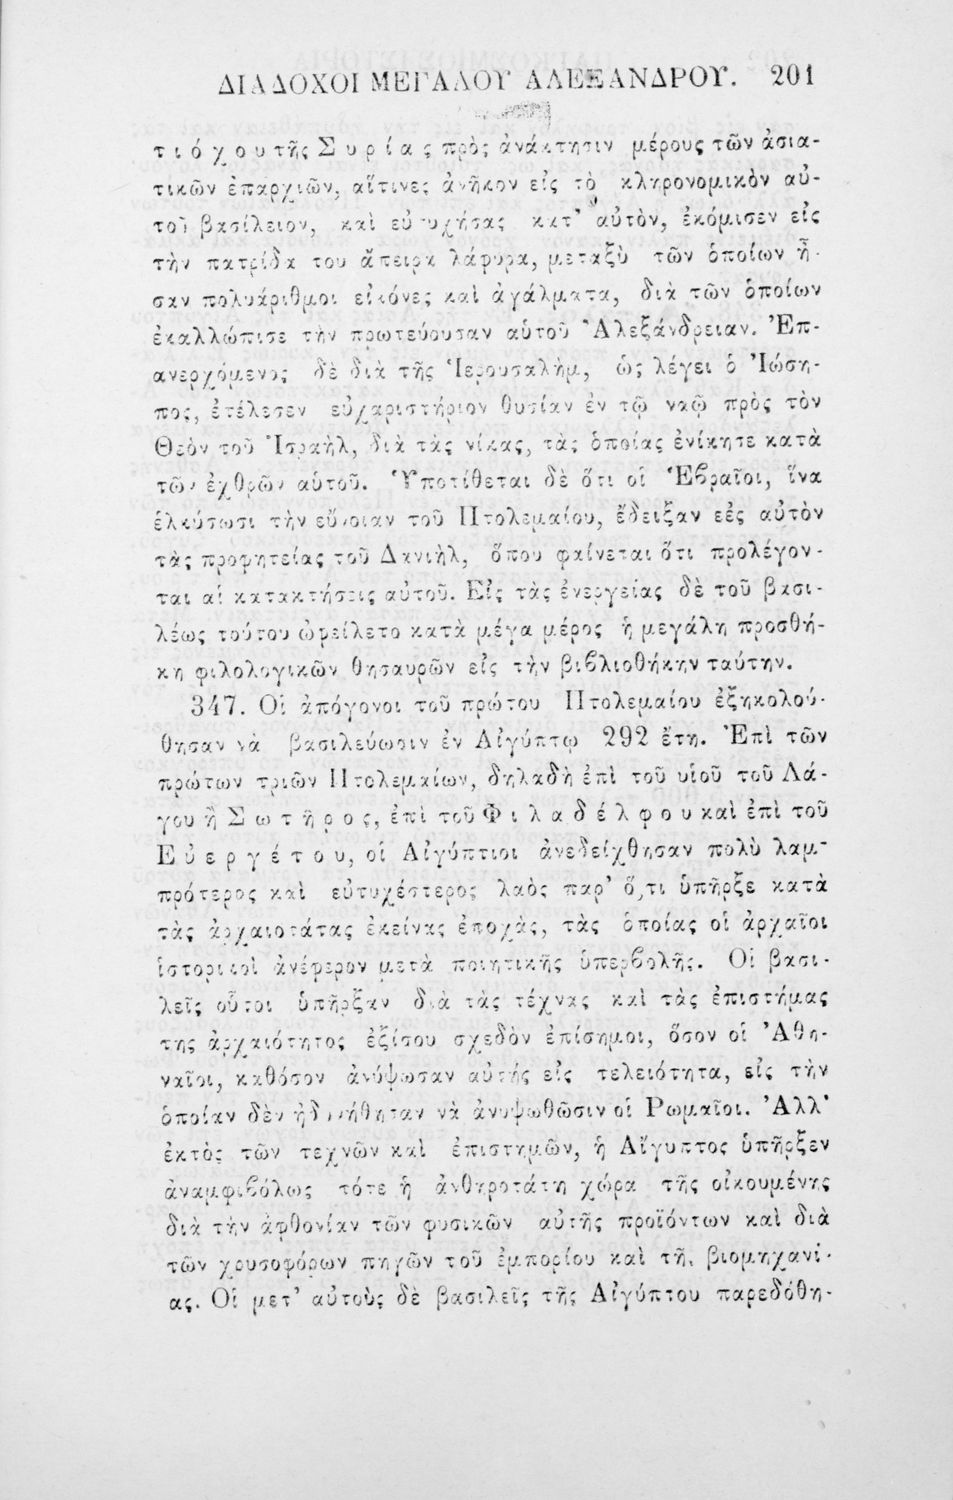 ΔΙΑΔΟΧΟΙ ΜΕΓΑΛΟΥ ΑΛΕΞΑΝΔΡΟΥ. 201
τιόχου τῆς Συρίας πρὸς ἀνάκτησιν μέρους τῶν ἀσια-
τικῶν ἐπαρχιῶν, αἵτινες ἀνῆκον εἰς τὸ κληρονομικὸν αὑ-
τοῦ βασίλειον, καὶ εὐτυχήσας κατ' αὐτὸν, ἐκόμισεν εἰς
τὴν πατρίδα του ἄπειρα λάφυρα, μεταξὺ τῶν ὁποίων ἦ-
σαν πολυάριθμοι εἰκόνες καὶ ἀγάλματα, διὰ τῶν ὁποίων
ἐκαλλώπισε τὴν πρωτεύουσαν αὑτοῦ Ἀλεξάνδρειαν. Ἐπ-
ανερχόμενος δὲ διὰ τῆς Ἱερουσαλὴμ, ὡς λέγει ὁ Ἰώση-
πος, ἐτέλεσεν εὐχαριστήριον θυσίαν ἐν τῷ ναῷ πρὸς τὸν
Θεὸν τοῦ Ἰσραὴλ, διὰ τὰς νίκας, τὰς ὁποίας ἐνίκησε κατὰ
τῶν ἐχθρῶν αὑτοῦ. Ὑποτίθεται δὲ ὅτι οἱ Ἑβραῖοι, ἵνα
ἑλκύσωσι τὴν εὔνοιαν τοῦ Πτολεμαίου, ἔδειξαν εἐς αὐτὸν
τὰς προφητείας τοῦ Δανιὴλ, ὅπου φαίνεται ὅτι προλέγον-
ται αἱ κατακτήσεις αὐτοῦ. Εἰς τὰς ἐνεργείας δὲ τοῦ βασι-
λέως τούτου ὠφείλετο κατὰ μέγα μέρος ἡ μεγάλη προσθή-
κη φιλολογικῶν θησαυρῶν εἰς τὴν βιβλιοθήκην ταύτην.
347. Οἱ ἀπόγονοι τοῦ πρώτου Πτολεμαίου ἐξηκολού-
θησαν νὰ βασιλεύωσιν ἐν Αἰγύπτῳ 292 ἔτη. Ἐπὶ τῶν
πρώτων τριῶν Πτολεμαίων, δηλαδὴ ἐπὶ τοῦ υἱοῦ τοῦ Λά-
γου ἢ Σωτῆρος, ἐπὶ τοῦ Φιλαδέλφου καὶ ἐπὶ τοῦ
Εὐεργέτου, οἱ Αἰγύπτιοι ἀνεδείχθησαν πολὺ λαμ-
πρότερος καὶ εὐτυχέστερος λαὸς παρ' ὅ,τι ὑπῆρξε κατὰ
τὰς ἀρχαιοτάτας ἐκείνας ἐποχὰς, τὰς ὁποίας οἱ ἀρχαῖοι
ἱστορικοὶ ἀνέφερον μετὰ ποιητικῆς ὑπερβολῆς. Οἱ βασι-
λεῖς οὗτοι ὑπῆρξαν διὰ τὰς τέχνας καὶ τὰς ἐπιστήμας
της ἀρχαιότητος ἐξίσου σχεδὸν ἐπίσημοι, ὅσον οἱ Ἀθη-
ναῖοι, καθόσον ἀνύψωσαν αὐτάς εἰς τελειότητα, εἰς τὴν
ὁποίαν δὲν ἠδυνήθησαν νὰ ἀνυψωθῶσιν οἱ Ρωμαῖοι. Ἀλλ'
ἐκτὸς τῶν τεχνῶν καὶ ἐπιστημῶν, ἡ Αἴγυπτος ὑπῆρξεν
ἀναμφιβόλως τότε ἡ ἀνθηροτάτη χώρα τῆς οἰκουμένης
διὰ τὴν ἀφθονίαν τῶν φυσικῶν αὐτῆς προϊόντων καὶ διὰ
τῶν χρυσοφόρων πηγῶν τοῦ ἐμπορίου καὶ τῆς βιομηχανί-
ας. Οἱ μετ' αὐτοὺς δὲ βασιλεῖς τῆς Αἰγύπτου παρεδόθη-